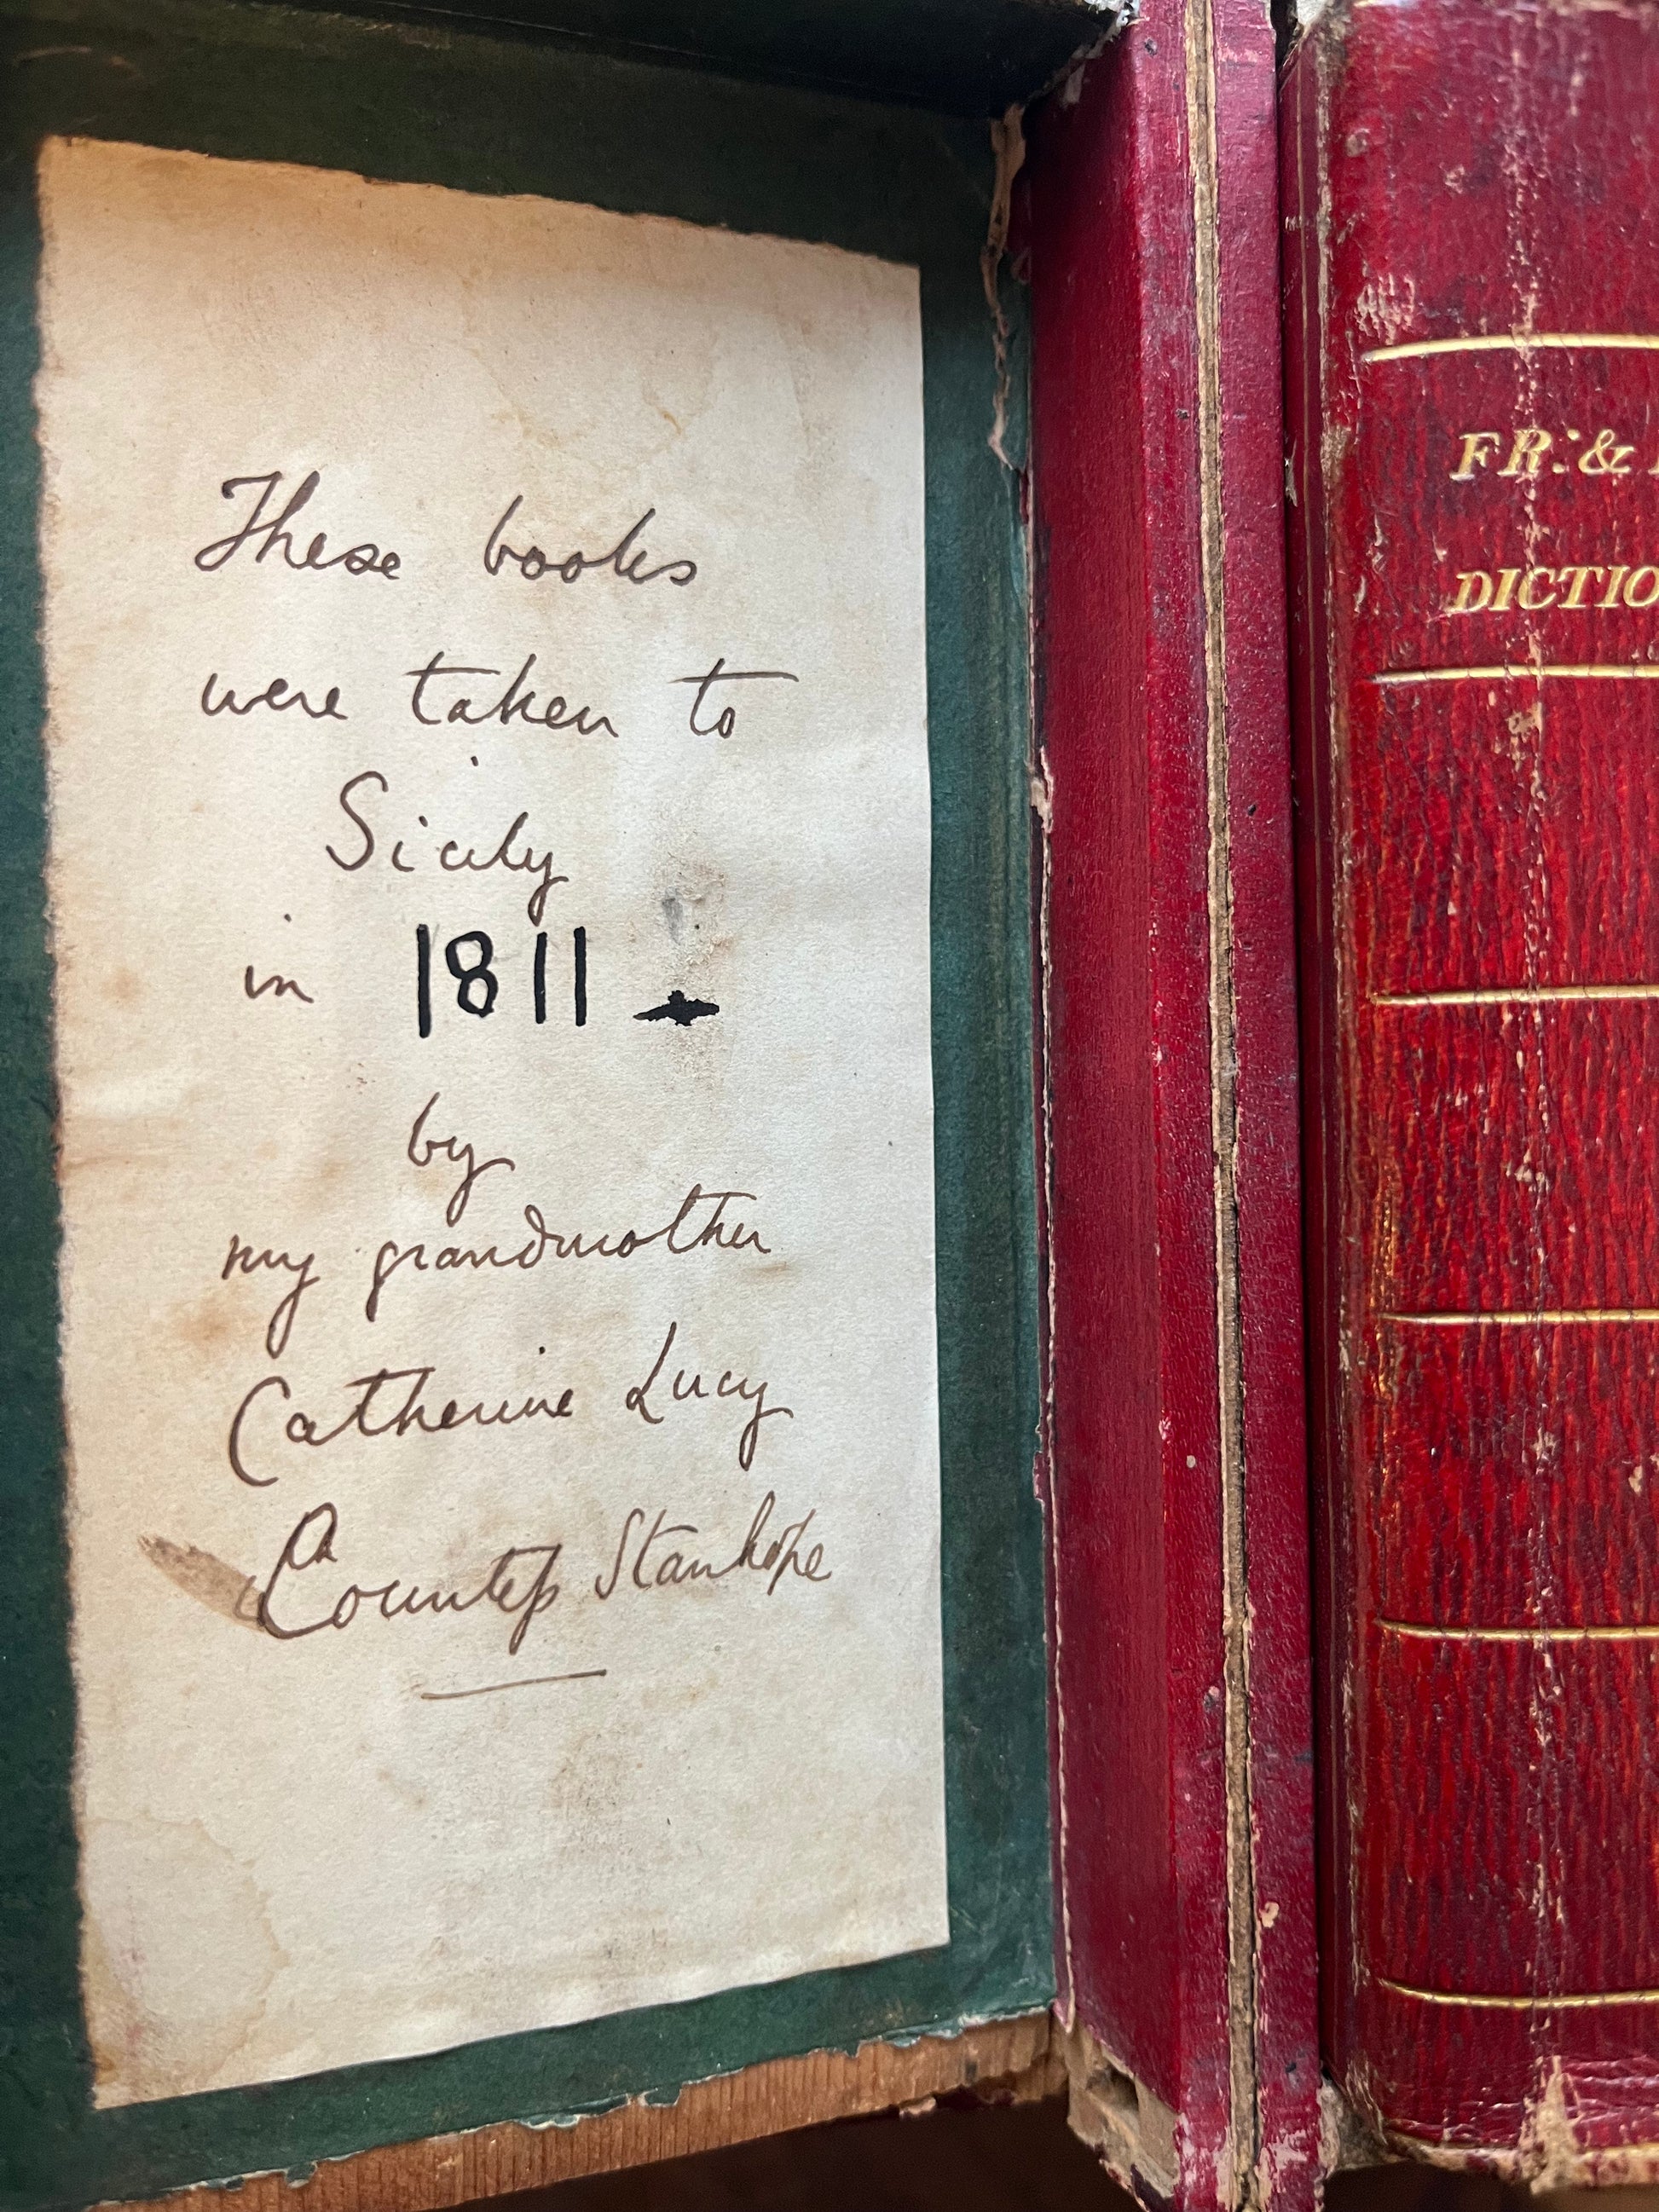 These books
were taken to
Sicily
in 1811
by
my grandmother
Catherine Lucy
Countess Stanhope
FR: &
DICTIO